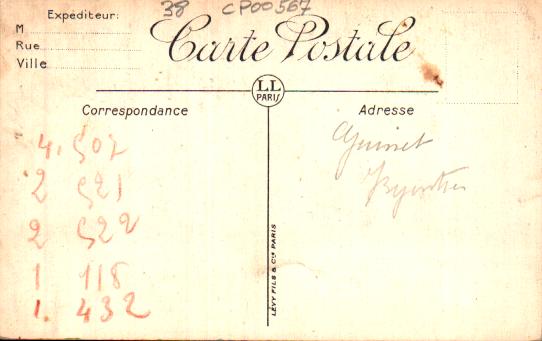 38 CP00567
Expéditeur:
M
Rue
Ville
Carte Postale
LL
PARIS
Correspondance
Adresse
4. 507
2 521
2 522
1 118
1. 432
LÉVY FILS & Cie PARIS